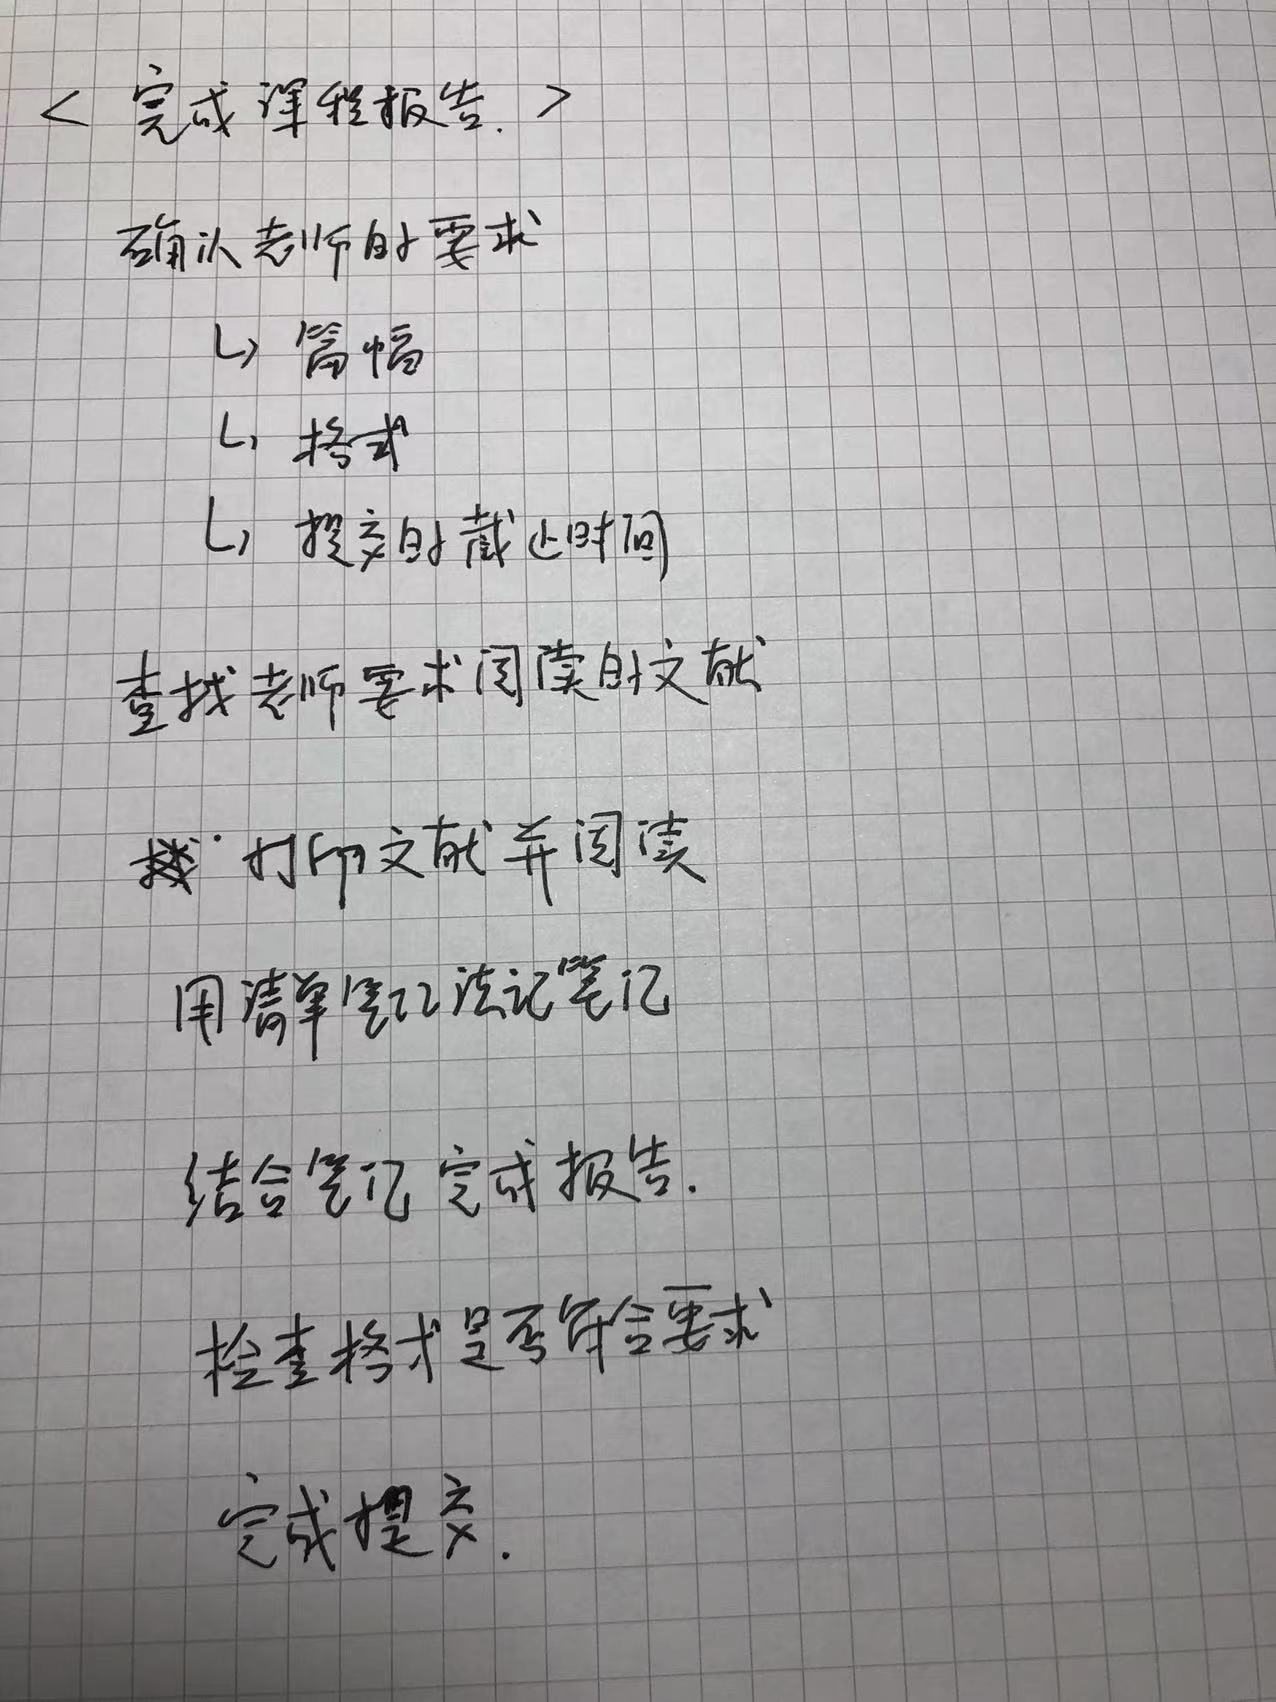 <完成课程报告.>
确认老师的要求
↳ 篇幅
↳ 格式
↳ 提交的截止时间
查找老师要求阅读的文献
打印文献并阅读
用清单笔记法记笔记
结合笔记完成报告.
检查格式是否符合要求
完成提交.